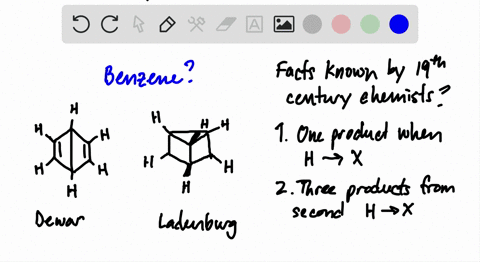 Benzene?
Facts known by 19th
century chemists?
1. One product when
H → X
2. Three products from
second H → X
H
H
H
H
H
H
Dewar
H
H
H
H
H
H
Ladenburg
A